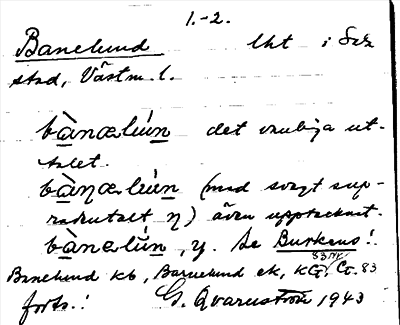 1.-2.
Banelund lht i Sala
stad, Västm. l.
bànœlún det vanliga ut-
talet.
bàηœlún (med svagt sup-
radentalt η) även upptecknat.
bànœlún, y. Se Burkens!
Banelund kb, Barnelund ek, KG. 83
forts.! G. Qvarnström 1943